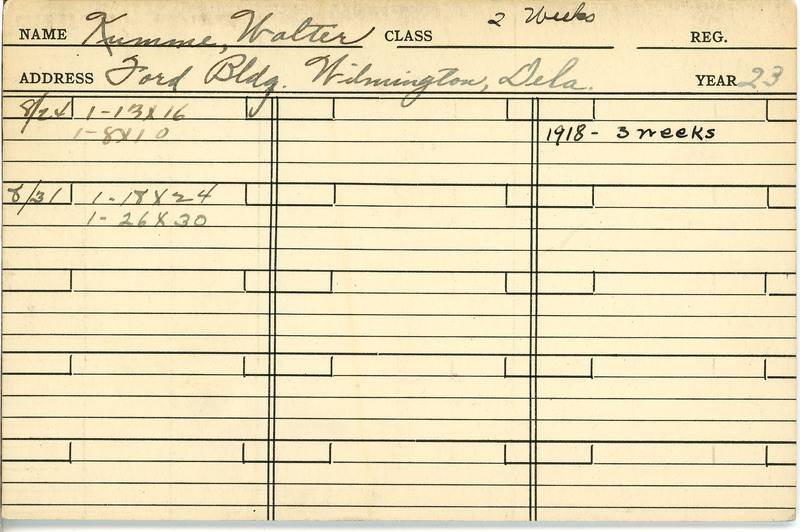 NAME Kumme, Walter CLASS 2 Weeks REG.
ADDRESS Ford Bldg. Wilmington, Dela. YEAR 23
8/24 1-13X16
1-8X10
1918 - 3 weeks
8/31 1-18X24
1-26X30